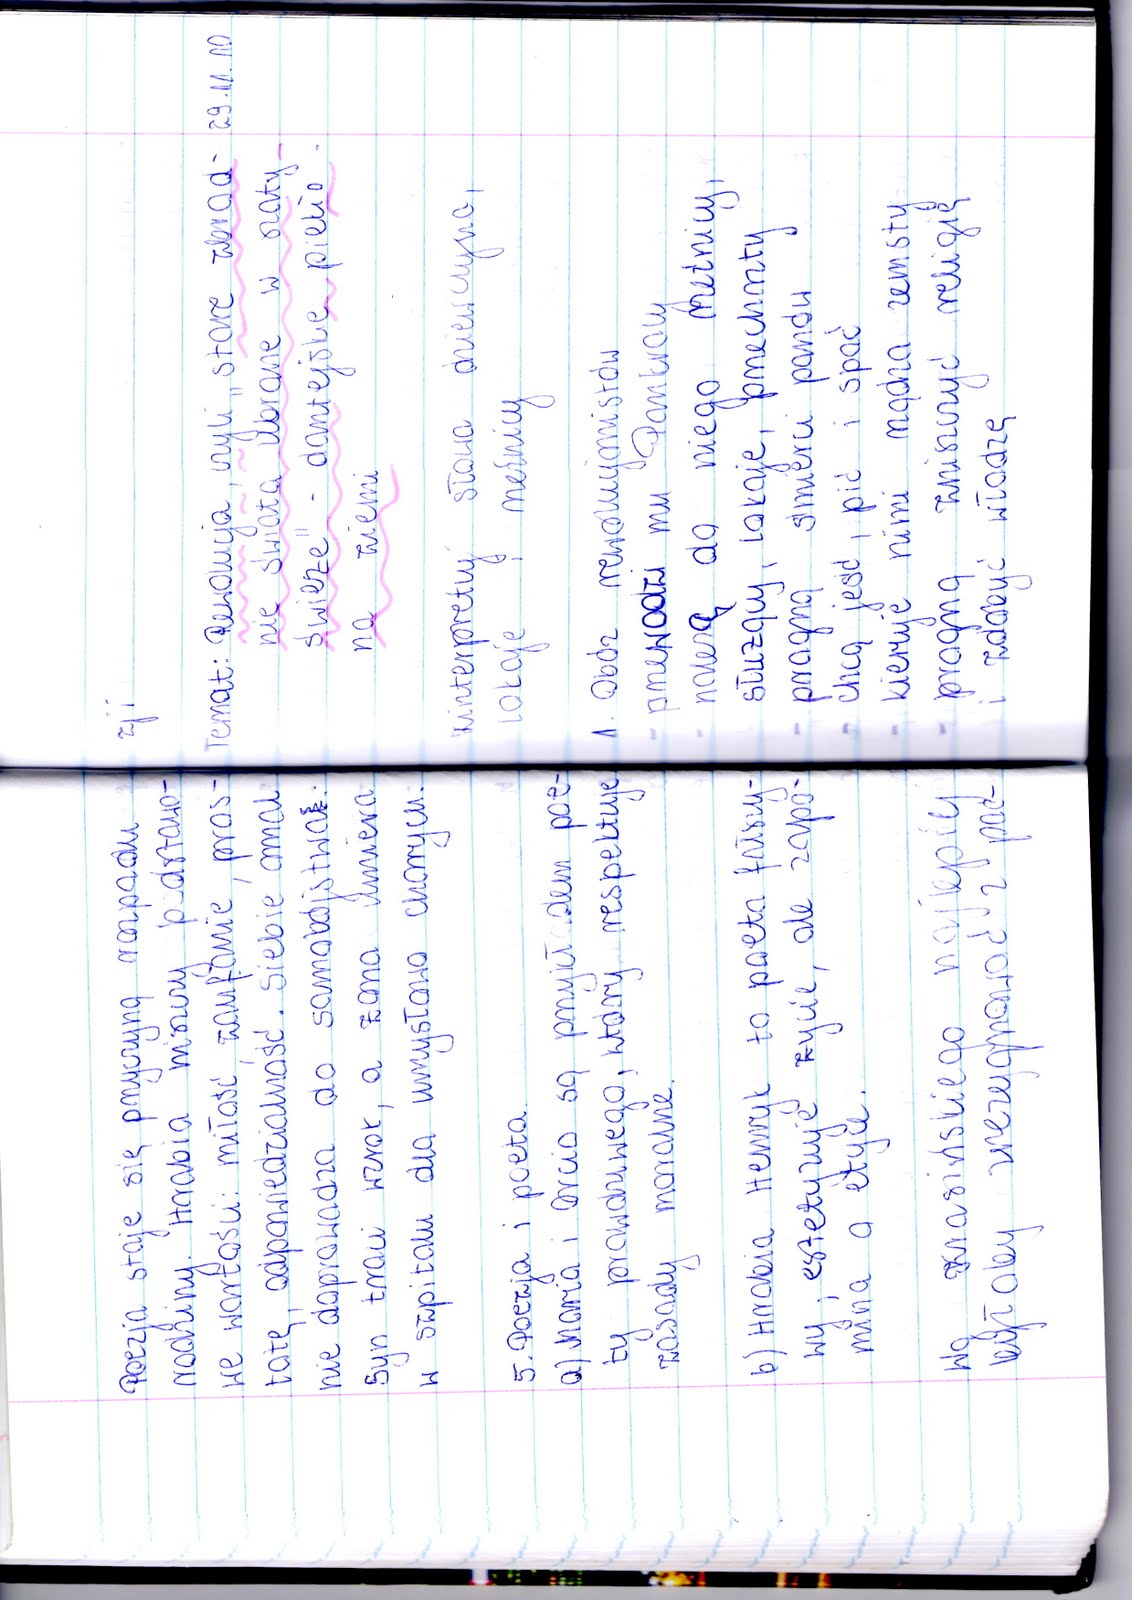 Poezja staje się przyczyną rozpadu
rodziny. Hrabia niszczy podstawo-
we wartości: miłość, zaufanie, pros-
totę, odpowiedzialność. Siebie omal
nie doprowadza do samobójstwa.
Syn traci wzrok, a żona umiera
w szpitalu dla umysłowo chorych.
5. Poezja i poeta.
a) Maria i Orcio są przykładem poe-
ty prawdziwego, który respektuje
zasady moralne.
b) Hrabia Henryk to poeta fałszy-
wy, estetyzuje życie, ale zapo-
mina o etyce.
Wg Krasińskiego najlepiej
byłoby zrezygnować z poe-
zji.
Temat: Rewolucja, czyli "stare zbrod- 29.11.10
nie świata ubrane w szaty
świeże" - dantejskie piekło
na ziemi
Zinterpretuj słowa dziewczyna,
lokaje, rzeźnicy
1. Obóz rewolucjonistów
- przewodzi mu Pankracy
- należą do niego rzeźnicy,
służący, lokaje, przechrzty
- pragną śmierci panów
- chcą jeść, pić i spać
- kieruje nimi żądza zemsty
- pragną zniszczyć religię
i zdobyć władzę